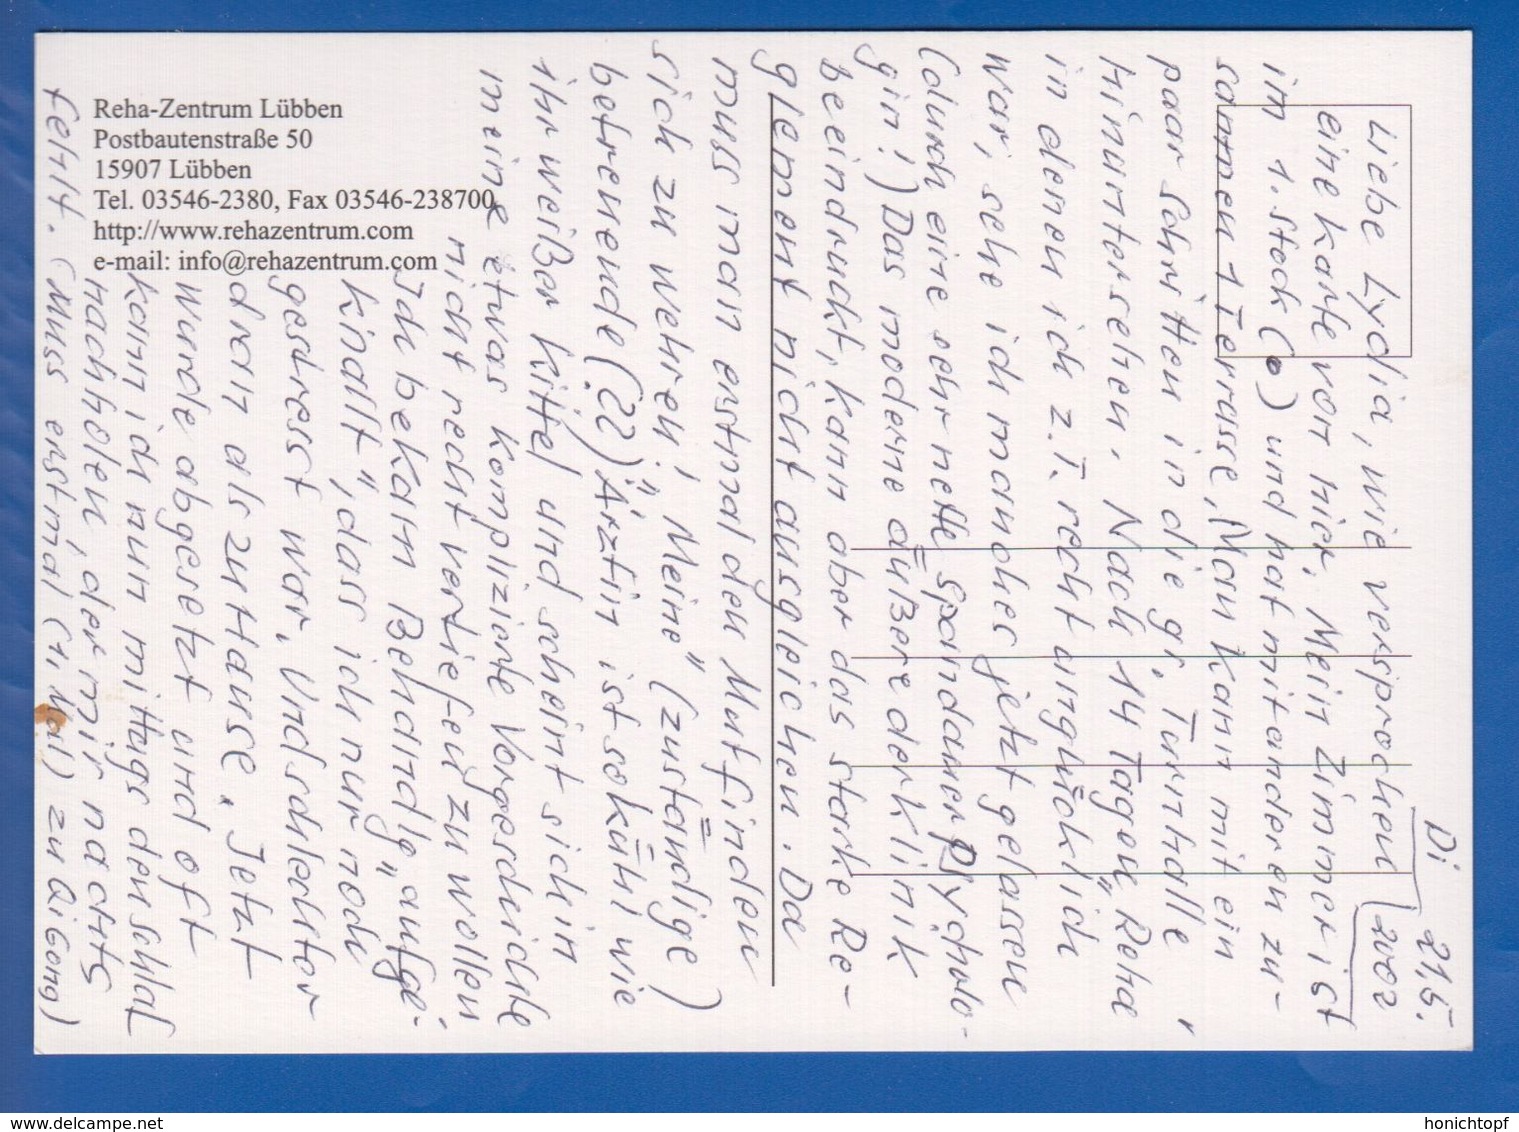 Reha-Zentrum Lübben
Postbautenstraße 50
15907 Lübben
Tel. 03546-2380, Fax 03546-238700
http://www.rehazentrum.com
e-mail: info@rehazentrum.com
Di 21.5.
2002
Liebe Lydia, wie versprochen
eine Karte von hier. Mein Zimmer ist
im 1. Stock und hat mit anderen zu-
sammen 1 Terrasse, Man kann mit ein
paar Schritten in die gr. Turnhalle
hinuntersehen. Nach 14 Tagen "Reha"
in denen ich z.T. recht unglücklich
war, sehe ich manches jetzt gelassen
(durch eine sehr nette Spandauer Psycholo-
gin!) Das moderne äußere der Klinik
beeindruckt, kann aber das starke Re-
glement nicht ausgleichen. Da
muss man erstmal den Mut finden
sich zu wehren! "Meine" (zuständige)
betreuende (??) Ärztin ist so kühl wie
ihr weißer Kittel und scheint sich in
meine etwas komplizierte Vorgeschichte
nicht recht vertiefen zu wollen
Ich bekam Behandlg "aufge-
knallt", dass ich nur noch
gestresst war. Und schlechter
dran als zu Hause. Jetzt
wurde abgesetzt und oft
kann ich nun mittags den Schlaf
nachholen, der mir nachts
fehlt. (Muss erstmal (1. Mal) zu QiGong)
www.delcampe.net
honichtopf